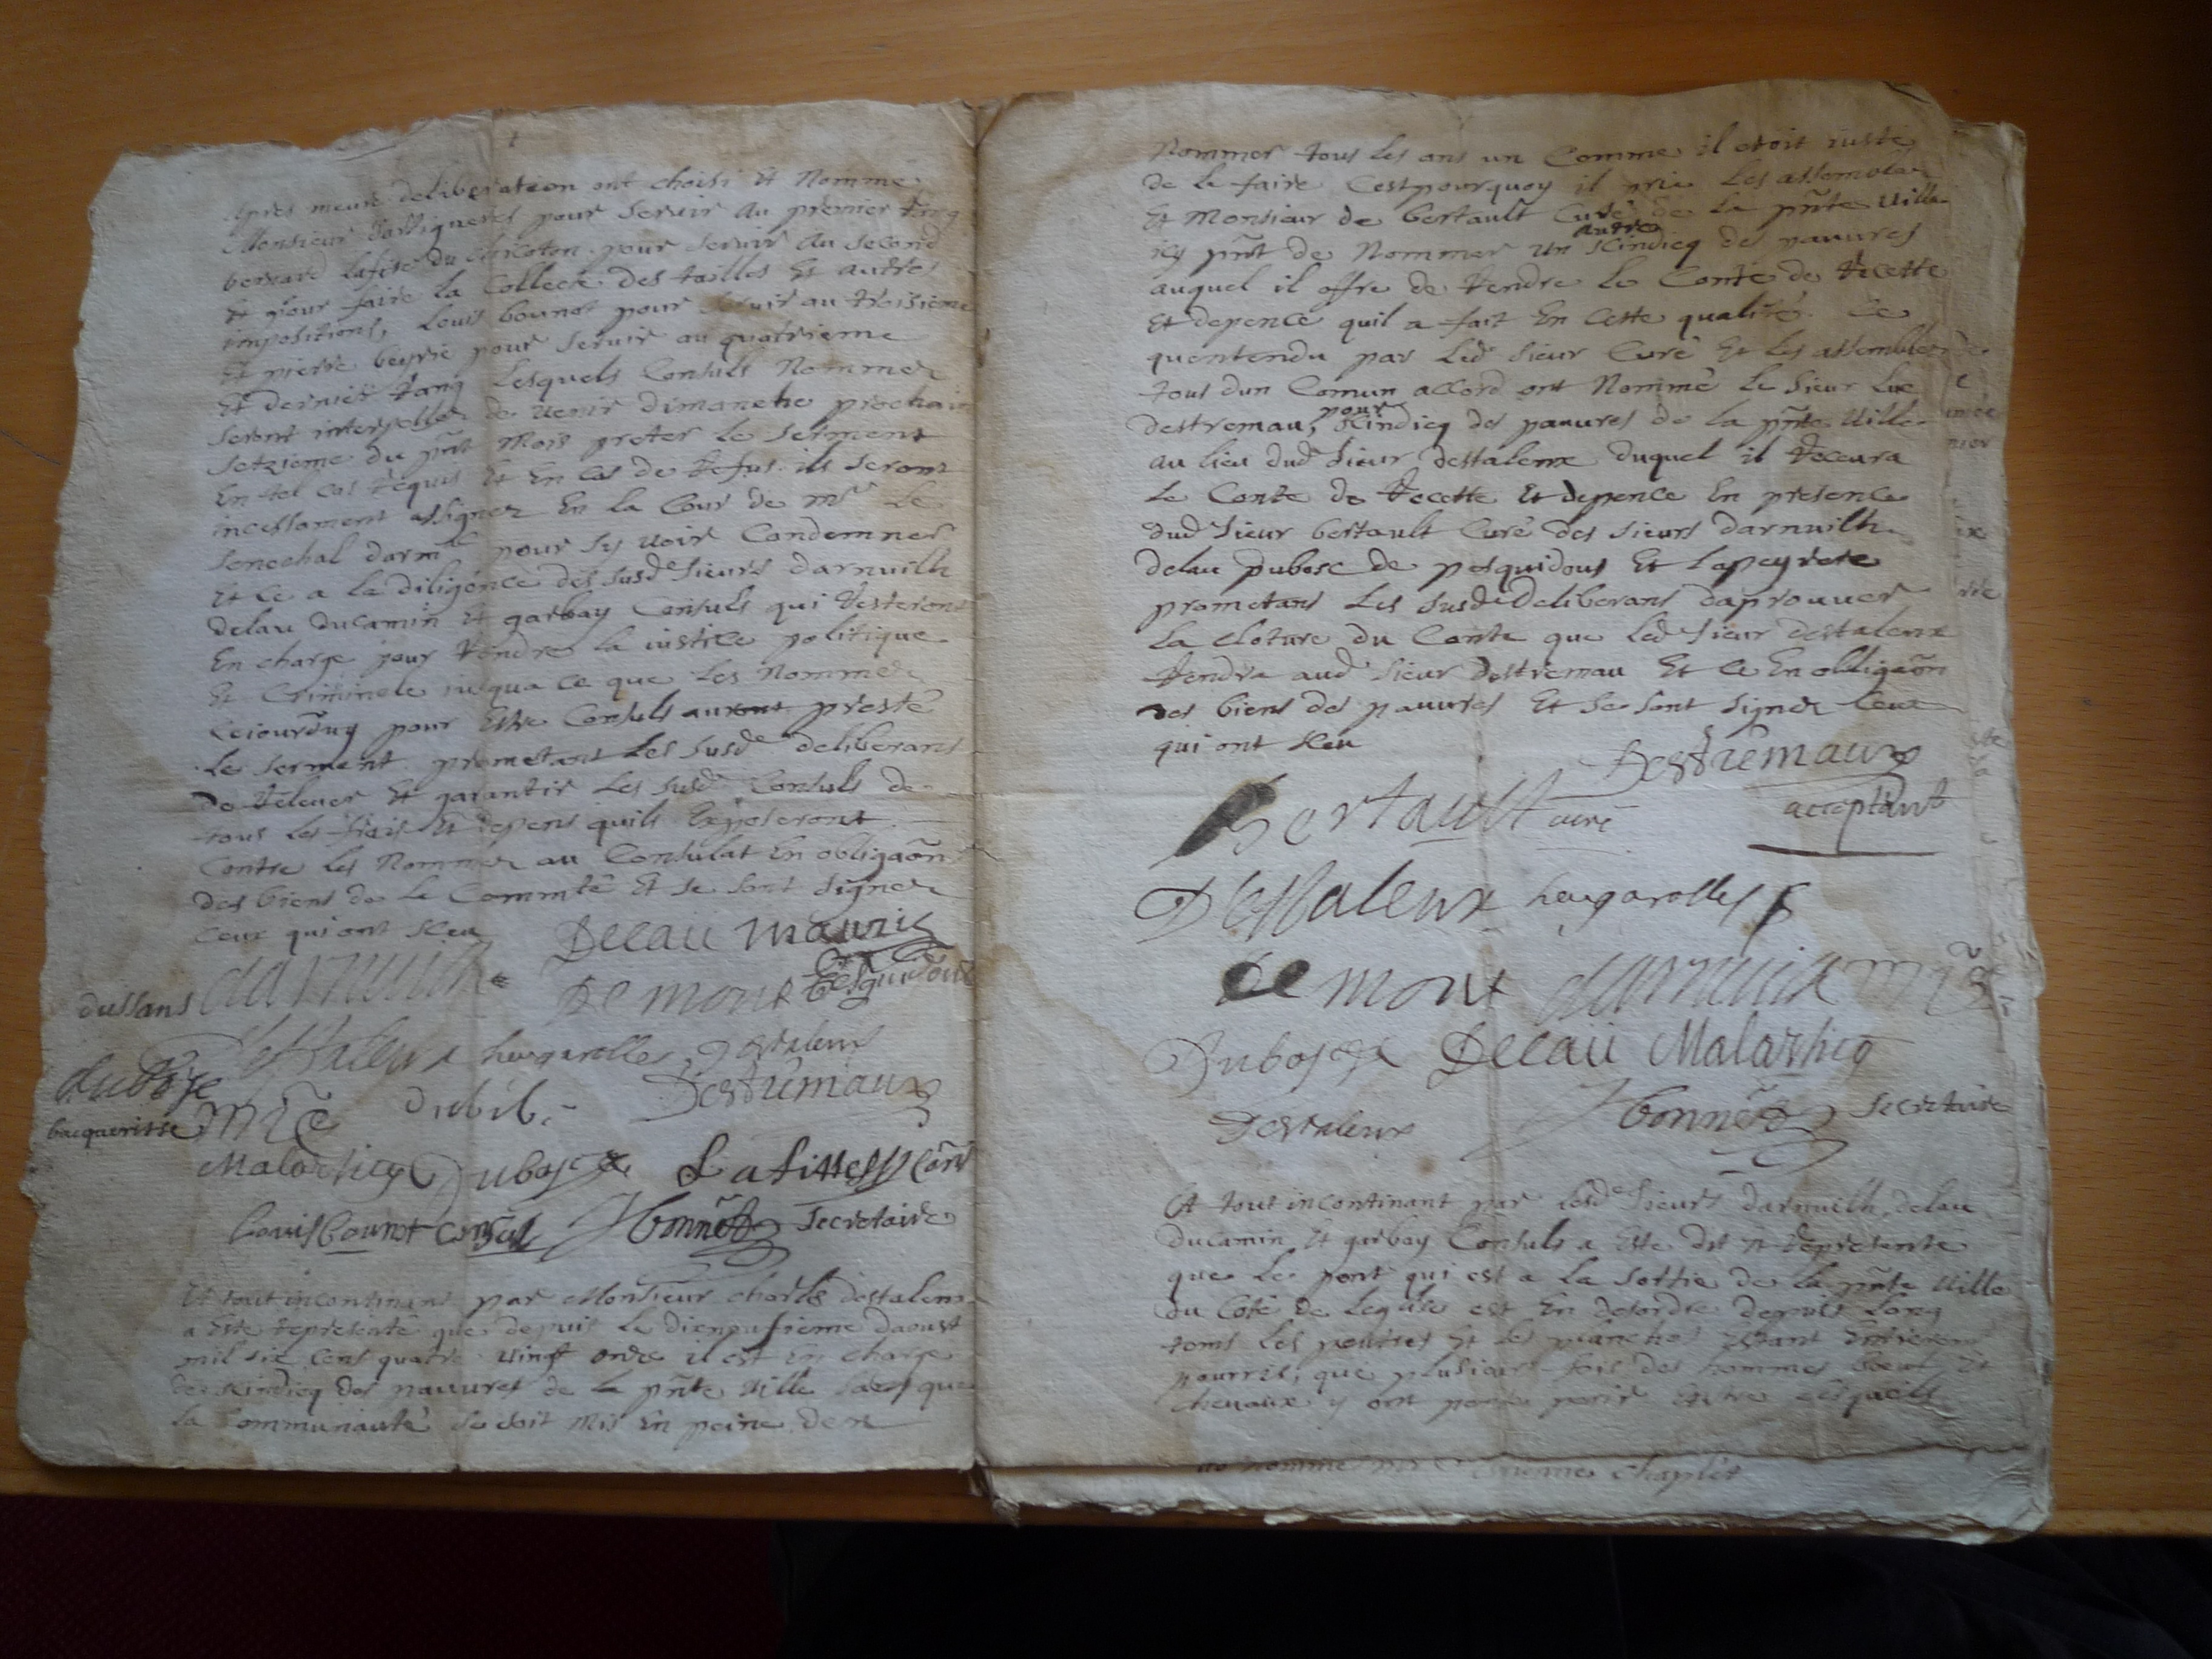 apres meure deliberation ont choisi et Nomme
Monsieur dartigueres pour servir au premier rang
bernard lafite du chicoton pour servir au second
et pour faire la Collecte des tailles Et autres
impositions, Louis bounot pour servir au troisieme
Et pierre beyrie pour servir au quatrieme
Et dernier rang Lesquels Consuls Nommez
seront interpellez de venir dimanche prochain
setzieme du pñt Mois preter le serment
En tel cas requis Et En cas de refus ils seront
incessament assignez En la Cour de mr Le
senechal darmc pour sy voir Condemner
Et ce a la diligence des susd sieurs darnuilh
delau ducamin et garbay Consuls qui resteront
En charge pour rendre la iustice politique
Et Criminele iusqua ce que les Nommez
ceiourduy pour Estre Consuls auront presté
le serment prometant Les susd deliberans
de relever Et garantir les susd Consuls de
tous les frais et depens quils Exposeront
Contre les Nommez au Consulat En obligaõn
des biens de la Commté Et se sont signez
ceux qui ont sceu
Delau mauris
dussans darnuilh Demont
destaleux heugarolles Destaleux
dubosc
bacquerisse dubib. Destremaux
Malarthicq Dubosc Lafitte
Louis bounot consul Ibonnet secretaire
Et tout incontinant par Monsieur charles destaleux
a este representé que depuis le dienpufieme daoust
mil six cens quatre vingt onze il est En charge
de scindicq des pauvres de la pñte ville sans que
la Communauté se soit mis En peine den
Nommer tous les ans un Comme il etoit iuste
de le faire Cestpourquoy il prie les assemblez
Et Monsieur de bertault Curé de la pñte ville
icy pñt de Nommer un autre scindicq des pauvres
auquel il offre de rendre le Conte de recette
Et depence quil a fait En cette qualité. Ce
quentendu par led sieur Curé Et les assemblez
tous dun Comun accord ont Nommé le sieur Luc
destremau, pour scindicq des pauvres de la pñte ville
au lieu dud sieur destaleux duquel il recevra
le Conte de recette Et depence En presence
dud sieur bertault Curé des sieurs darnuilh
delau dubosc de pesquidous Et lapeyrere
prometans les susd Deliberans daprouver
la cloture du Conte que led sieur destaleux
rendra aud sieur destremau Et ce En obligaõn
des biens des pauvres Et se sont signez Ceux
qui ont sceu
Destremaux
Bertault curé acceptant
Destaleux heugarolles
Demont darnuilh
Dubosc Delau Malarthicq
Destaleux Ibonnet Secretaire
Et tout incontinant par lesd sieurs darnuilh, delau
ducamin Et garbay Consuls a Este dit et representé
que le pont qui est a la sortie de la pñte ville
du Coté de leglise est En desordre depuis long
tems les poutres Et les planches Estant Entierem
pourris; que plusieurs fois des hommes boeufs Et
chevaux y ont pensé perir